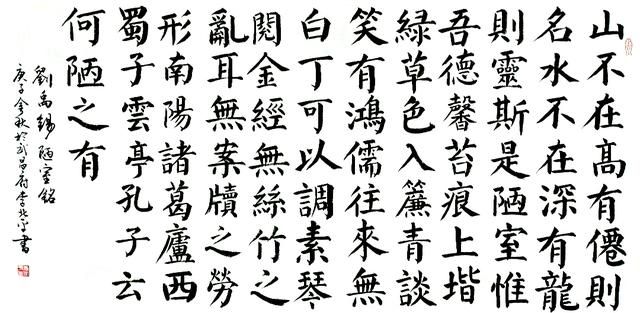 山不在高有僊則
名水不在深有龍
則靈斯是陋室惟
吾德馨苔痕上堦
綠草色入簾青談
笑有鴻儒往來無
白丁可以調素琴
閱金經無絲竹之
亂耳無案牘之勞
形南陽諸葛廬西
蜀子雲亭孔子云
何陋之有
劉禹錫陋室銘
庚子金秋於武昌府李書